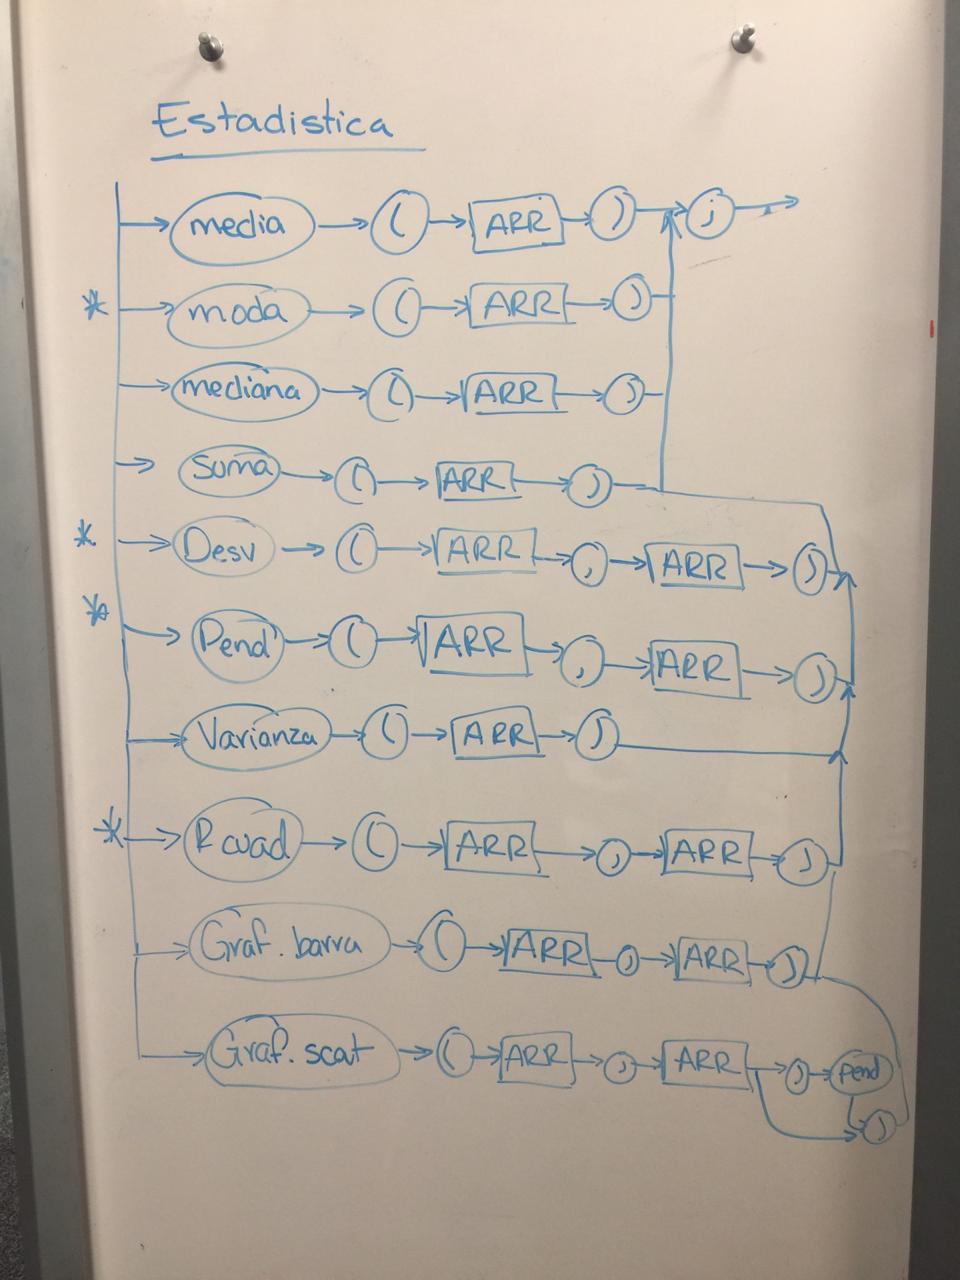 Estadistica
media ( ARR ) ;
* moda ( ARR )
mediana ( ARR )
Suma ( ARR )
* Desv ( ARR , ARR )
* Pend ( ARR , ARR )
Varianza ( ARR )
* R cuad ( ARR , ARR )
Graf. barra ( ARR , ARR )
Graf. scat ( ARR , ARR , Pend )